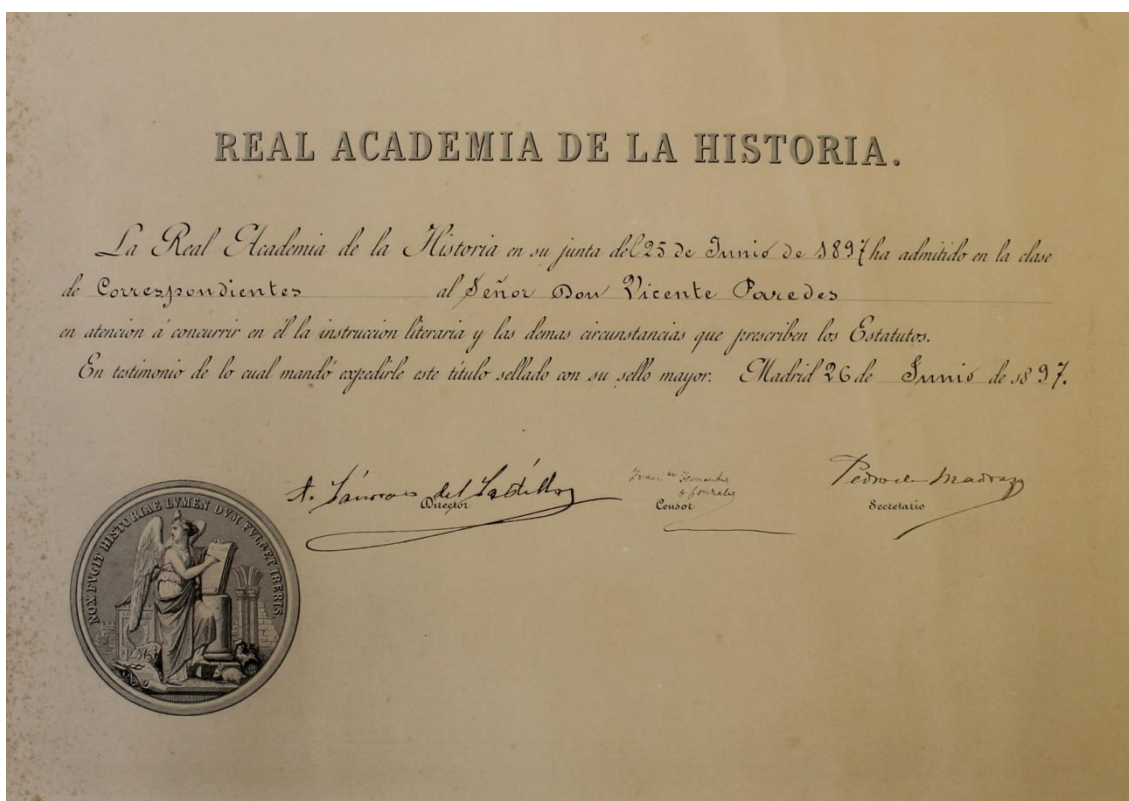 REAL ACADEMIA DE LA HISTORIA.
La Real Academia de la Historia en su junta del 25 de Junio de 1897 ha admitido en la clase
de Correspondientes al Señor Don Vicente Paredes
en atencion á concurrir en él la instruccion literaria y las demas circunstancias que prescriben los Estatutos.
En testimonio de lo cual mandó expedirle este título sellado con su sello mayor. Madrid 26 de Junio de 1897.
A. Cánovas del Castillo
Director
Franco Fernandez
y Gonzalez
Censor
Pedro de Madrazo
Secretario
NOX FVGIT HISTORIAE LVMEN DVM FVLGET IBERIS.